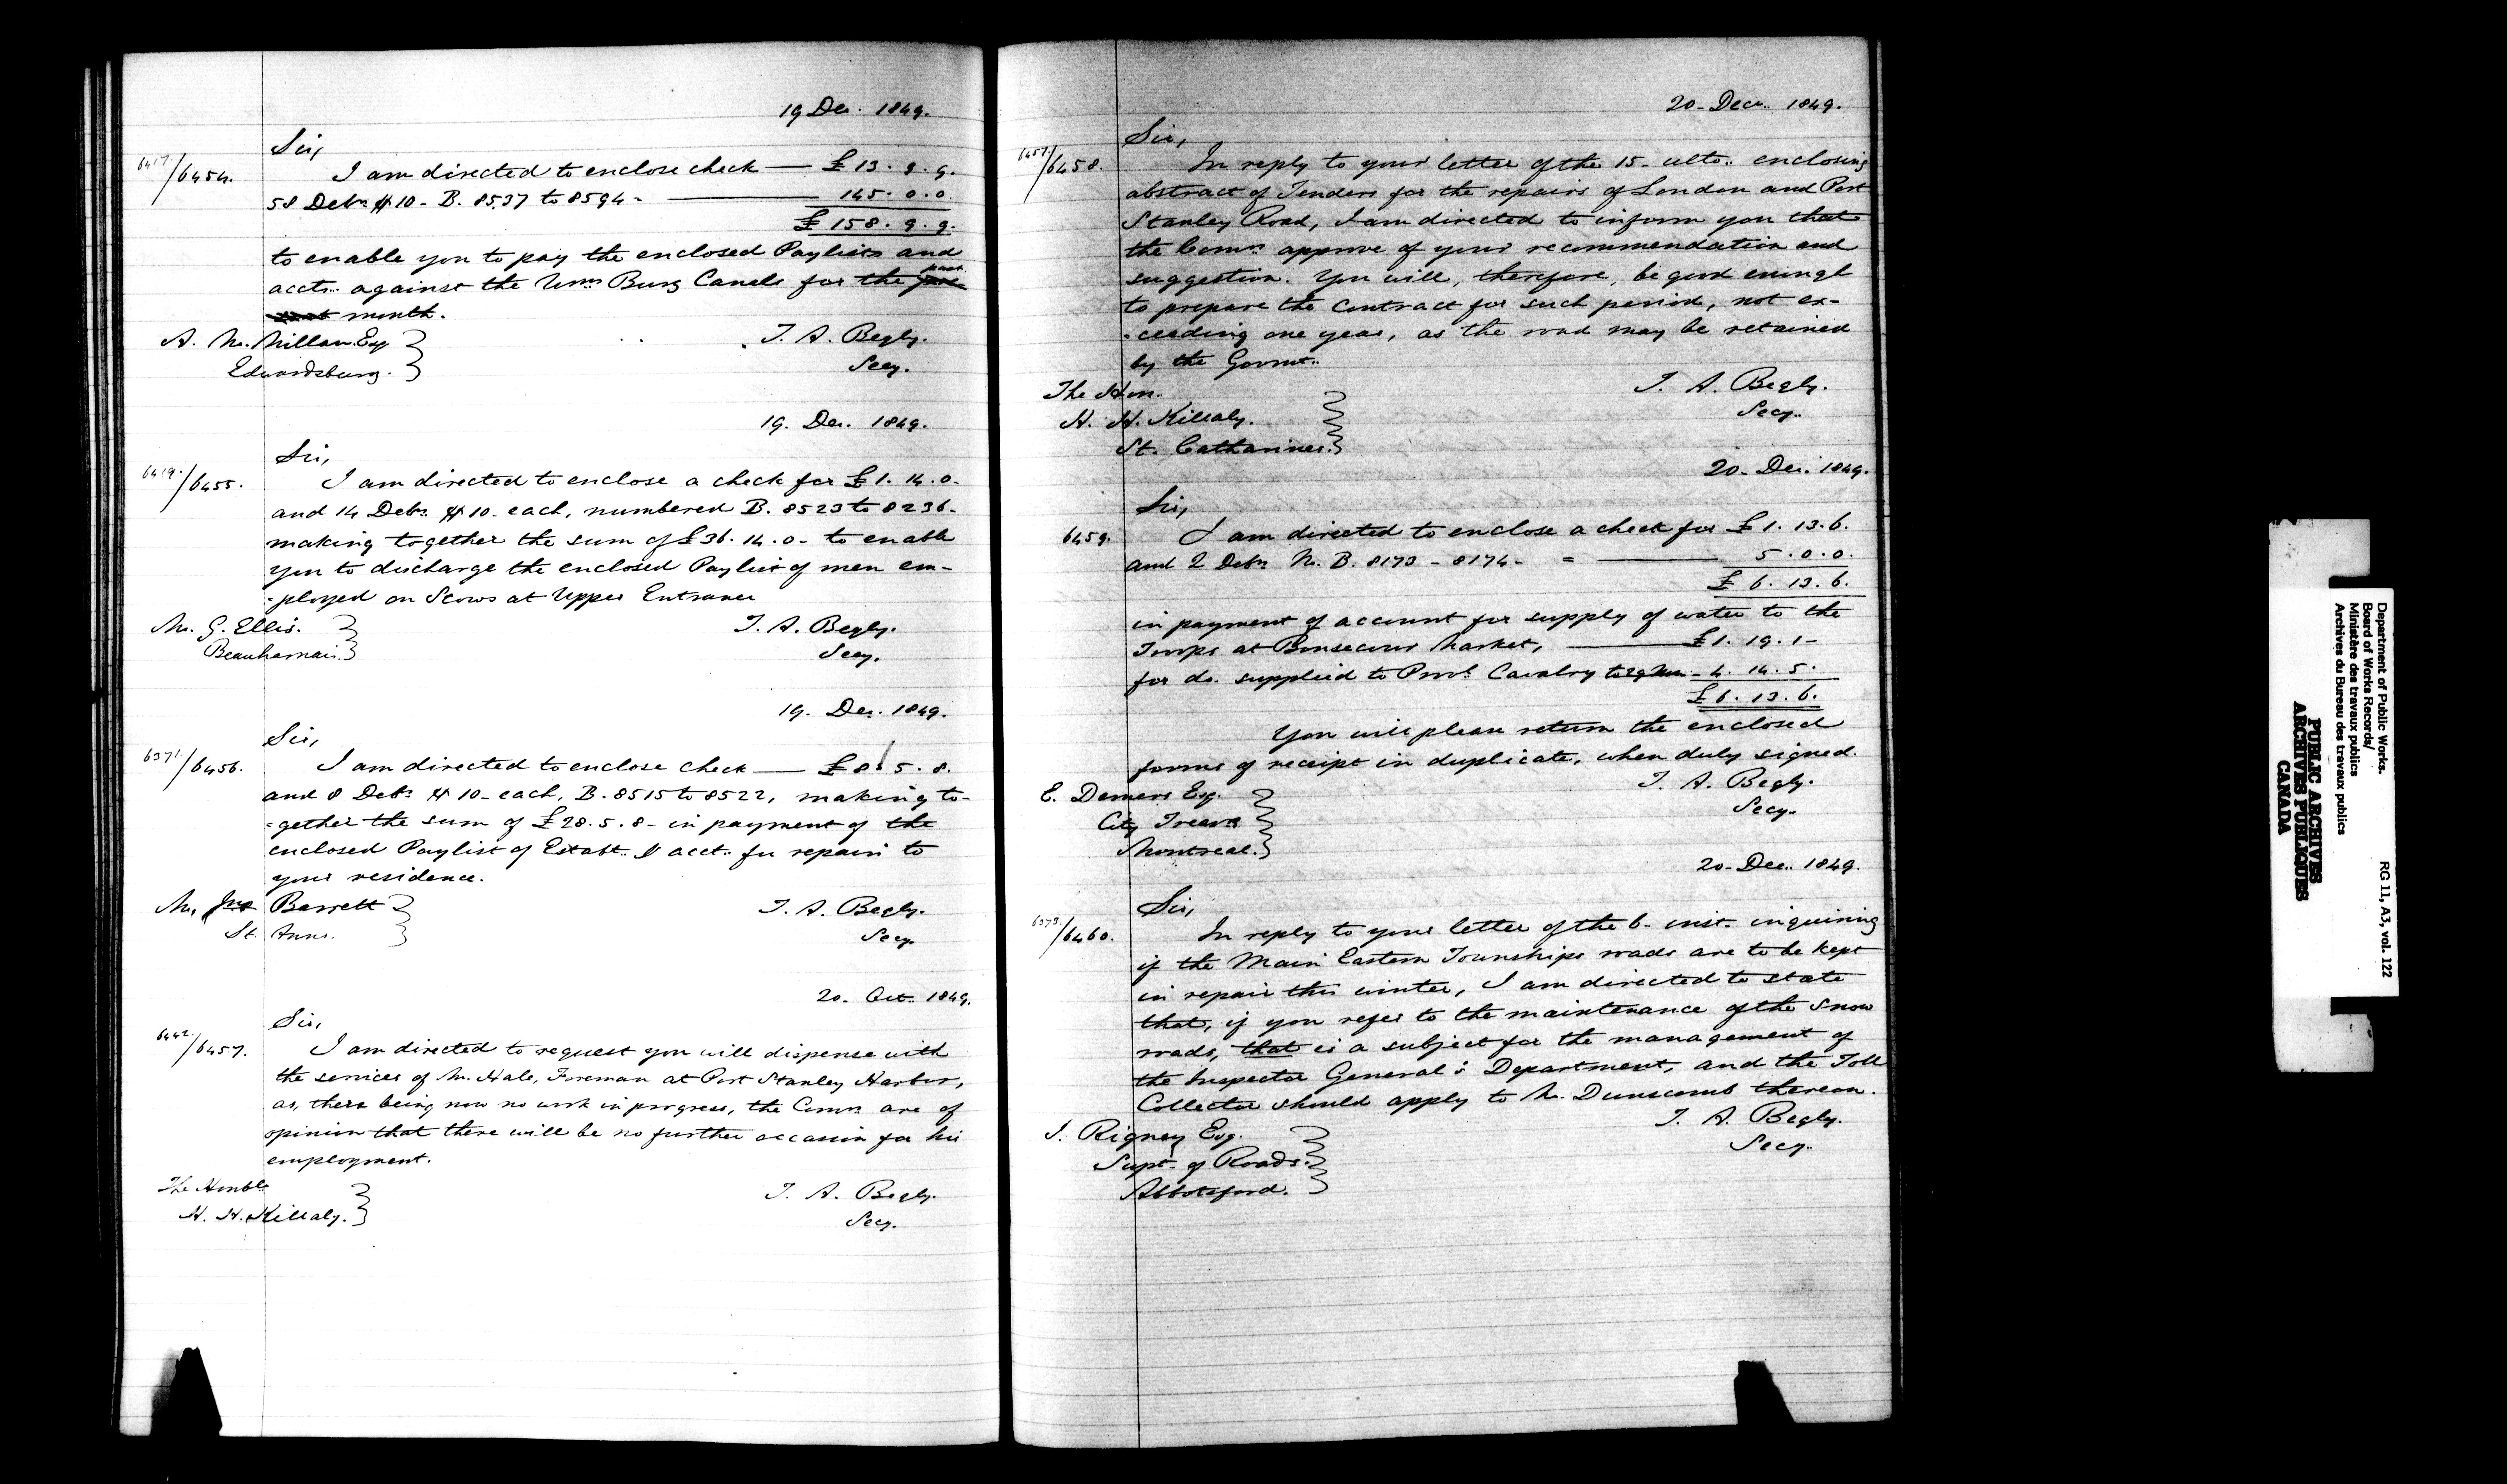 19 Der. 1849.
Sir,
6417./6454. I am directed to enclose check — £13. 9. 9.
58 Debs. $10 - B. 8537 to 8594 - — 145. 0. 0.
£158. 9. 9.
to enable you to pay the enclosed Paylists and
accts. against the Wms Burg Canals for the past
month.
A. McMillan Esq
Edwardsburg.
T. A. Begly.
Secy.
19. Der. 1849.
Sir,
6419./6455. I am directed to enclose a check for £1. 14. 0-
and 14 Debs. $10- each, numbered B. 8523 to 8236-
making together the sum of £36. 14. 0- to enable
you to discharge the enclosed Paylist of men em-
-ployed on Scows at Upper Entrance
Mr. G. Ellis.
Beauharnais.
T. A. Begly.
Secy.
19. Der. 1849.
Sir,
6371./6456. I am directed to enclose check — £8. 5. 8.
and 8 Debs. $10- each, B. 8515 to 8522, making to-
-gether the sum of £28. 5. 8- in payment of the
enclosed Paylist of Establt. & acct. for repairs to
your residence.
Mr. Jno Barrett
St. Anns.
T. A. Begly.
Secy.
20. Oct. 1849.
Sir,
6442./6457. I am directed to request you will dispense with
the services of Mr. Hale, Foreman at Port Stanley Harbor,
as, there being now no work in progress, the Comrs. are of
opinion that there will be no further occasion for his
employment.
The Honble
H. H. Killaly.
T. A. Begly.
Secy.
20- Decr. 1849.
Sir,
6457/6458. In reply to your letter of the 15- ulto. enclosing
abstract of Tenders for the repairs of London and Port
Stanley Road, I am directed to inform you that
the Comrs. approve of your recommendation and
suggestion. You will, therefore, be good enough
to prepare the contract for such period, not ex-
-ceeding one year, as the road may be retained
by the Govmt.
The Hon.
H. H. Killaly.
St. Catharines.
T. A. Begly.
Secy.
20- Der. 1849.
Sir,
6459. I am directed to enclose a check for £1. 13. 6.
and 2 Debs. N. B. 8173 - 8174- = — 5. 0. 0.
£6. 13. 6.
in payment of account for supply of water to the
Troops at Bonsecour Market, — £1. 19. 1-
for do. supplied to Provl. Cavalry to - 4. 14. 5.
£6. 13. 6.
You will please return the enclosed
forms of receipt in duplicate, when duly signed.
E. Demers Esq.
City Treasr
Montreal.
T. A. Begly.
Secy.
20- Dec. 1849.
Sir,
6373./6460. In reply to your letter of the 6- inst. inquiring
if the Main Eastern Townships roads are to be kept
in repair this winter, I am directed to state
that, if you refer to the maintenance of the snow
roads, that is a subject for the management of
the Inspector General's Department, and the Toll
Collector should apply to Mr. Dunscomb thereon.
J. Rigney Esq.
Supt. of Roads.
Abbotsford.
T. A. Begly.
Secy.
Department of Public Works.
Board of Works Records/
Ministère des travaux publics
Archives du Bureau des travaux publics
RG 11, A3, vol. 122
PUBLIC ARCHIVES
ARCHIVES PUBLIQUES
CANADA